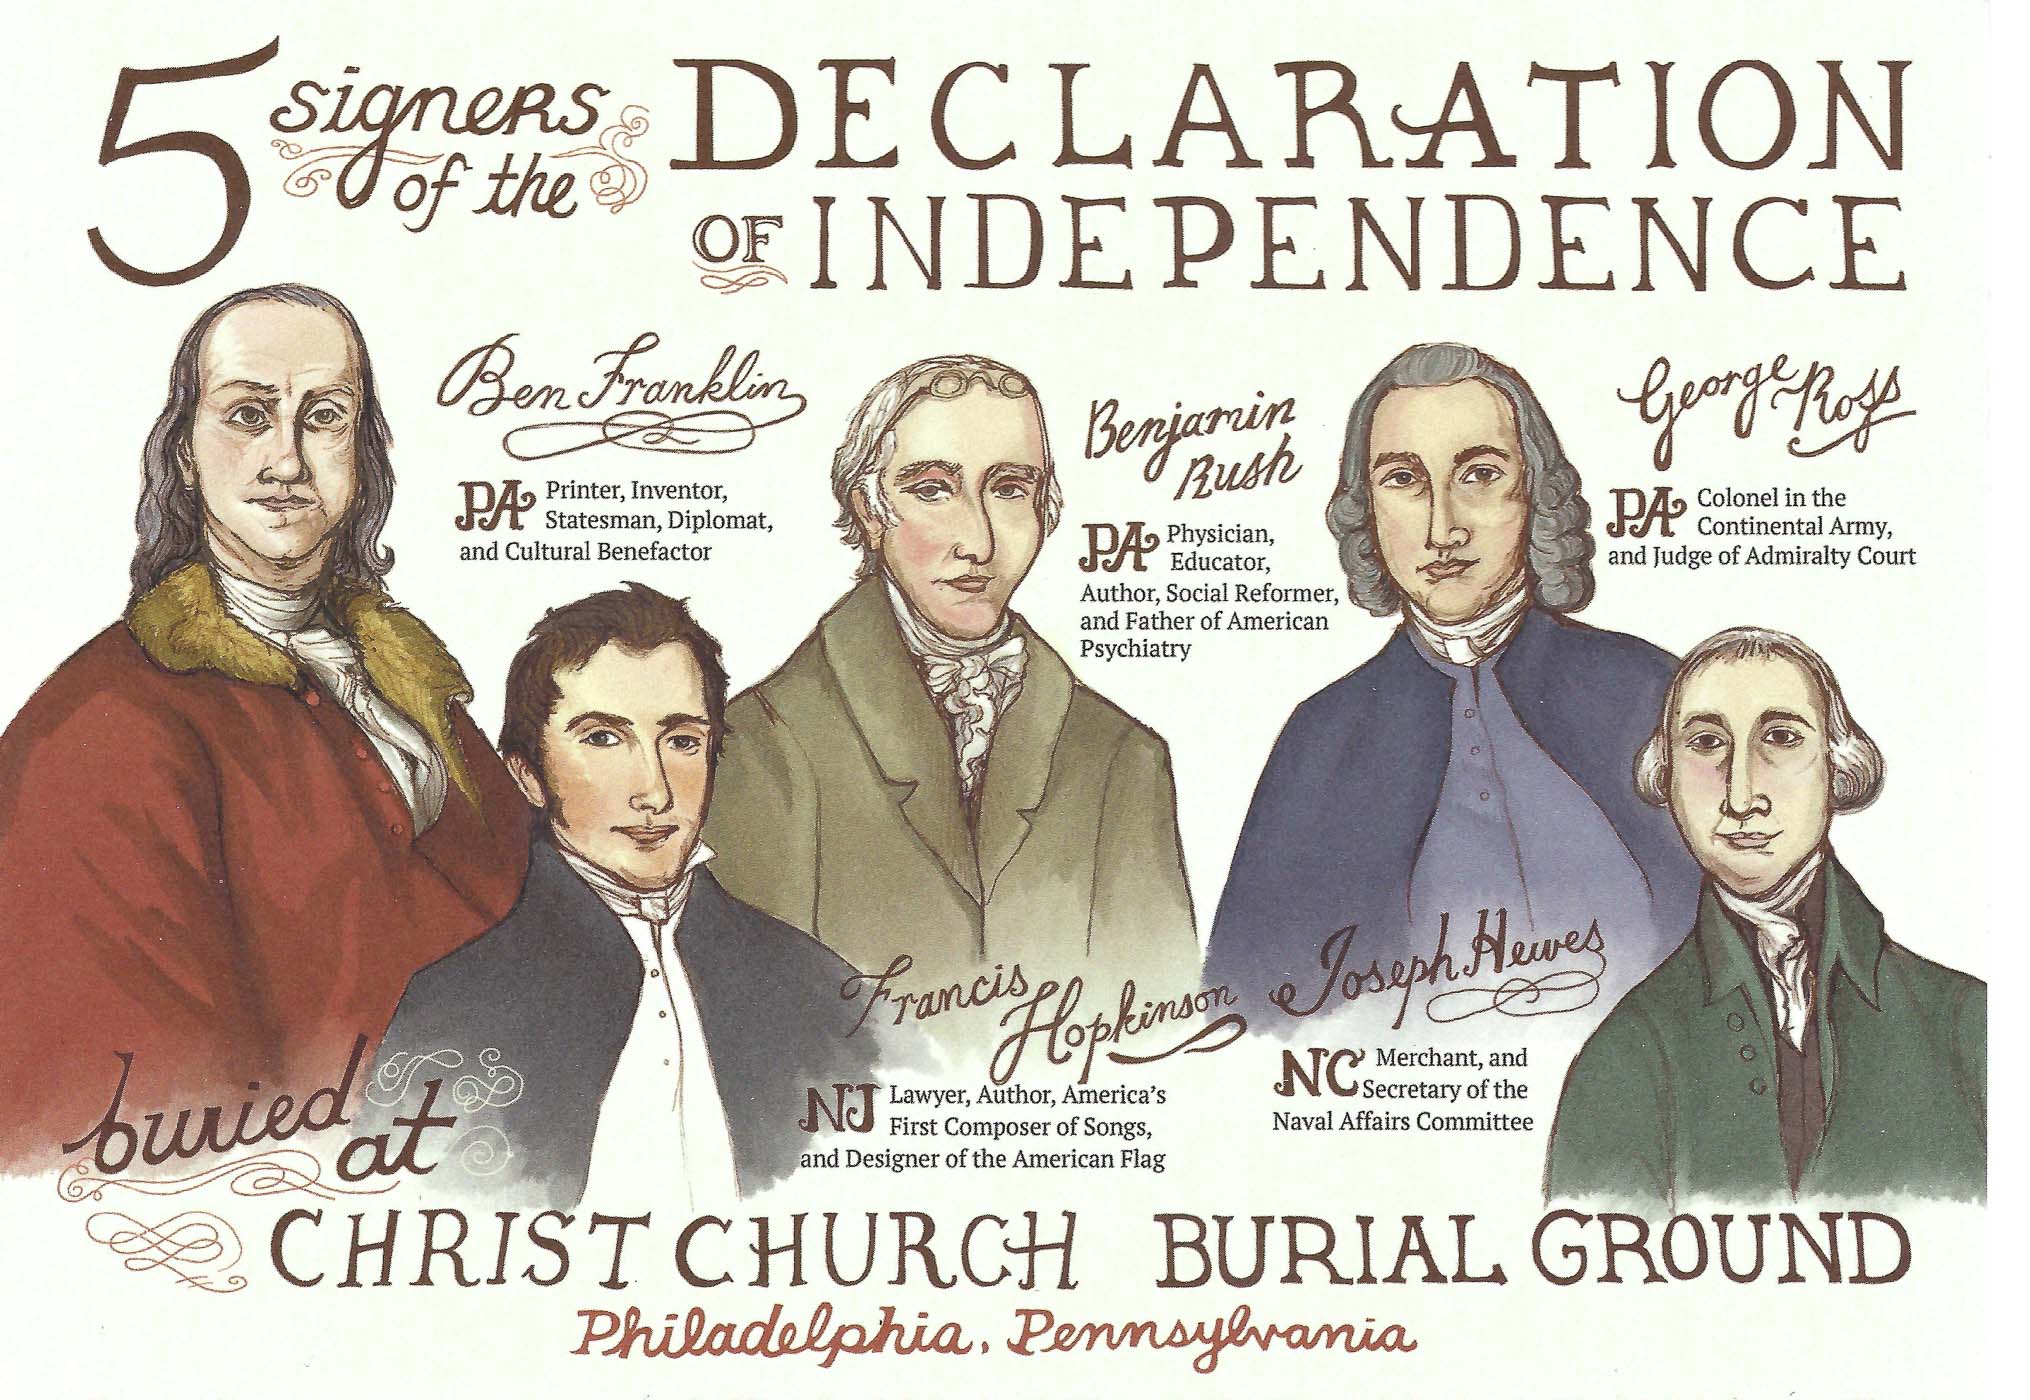 5 signers
of the
DECLARATION
OF INDEPENDENCE
Ben Franklin
PA Printer, Inventor,
Statesman, Diplomat,
and Cultural Benefactor
Benjamin
Rush
PA Physician,
Educator,
Author, Social Reformer,
and Father of American
Psychiatry
George Ross
PA Colonel in the
Continental Army,
and Judge of Admiralty Court
Francis
Hopkinson
NJ Lawyer, Author, America's
First Composer of Songs,
and Designer of the American Flag
Joseph Hewes
NC Merchant, and
Secretary of the
Naval Affairs Committee
buried
at
CHRIST CHURCH BURIAL GROUND
Philadelphia, Pennsylvania